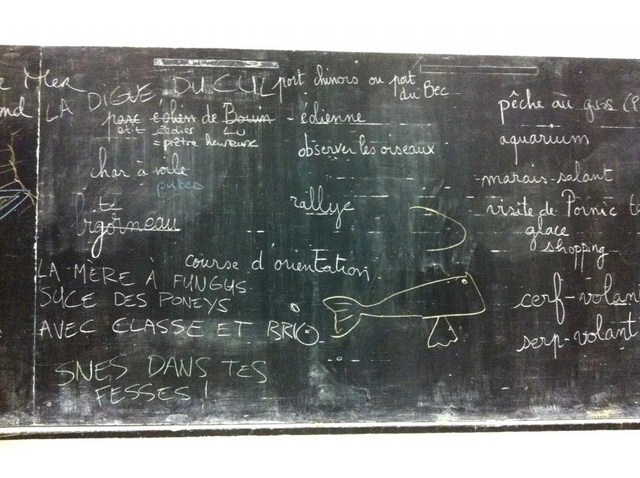 Mer
LA DIGUE, DU CUL
port chinois ou port
du Bec
pêche au gros
parc éolien de Bouin - éolienne
= prêtre heureux
aquarium
observer les oiseaux
char à voile
putes
marais-salant
bigorneau
rallye
visite de Pornic
glace
shopping
course d'orientation
LA MÈRE À FUNGUS
SUCE DES PONEYS
AVEC CLASSE ET BRIO
cerf-volant
serp-volant
SNES DANS TES
FESSES !